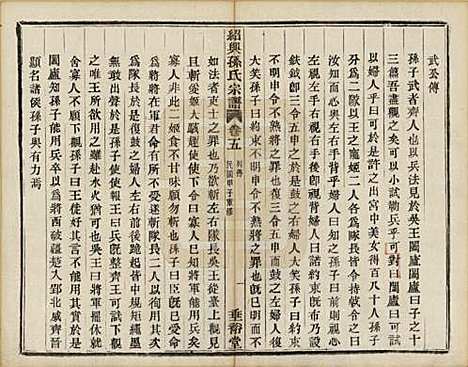 武公傳
孫子武者齊人也以兵法見於吳王闔廬闔廬曰子之十
三篇吾盡觀之矣可以小試勒兵乎對曰可闔廬曰可試
以婦人乎曰可於是許之出宮中美女得百八十人孫子
分爲二隊以王之寵姬二人各爲隊長皆令持戟令之曰
汝知而心與左右手背乎婦人曰知之孫子曰前則視心
左視左手右視右手後即視背婦人曰諾約束既布乃設
鈇鉞即三令五申之於是鼓之右婦人大笑孫子曰約束
不明申令不熟將之罪也復三令五申而鼓之左婦人復
大笑孫子曰約束不明申令不熟將之罪也既已明而不
紹興孫氏宗譜
卷五
列傳
民國甲子重修
一
垂裕堂
如法者吏士之罪也乃欲斬左右隊長吳王從臺上觀見
且斬愛姬大駭趣使使下令曰寡人已知將軍能用兵矣
寡人非此二姬食不甘味願勿斬也孫子曰臣既已受命
爲將將在軍君命有所不受遂斬隊長二人以徇用其次
爲隊長於是復鼓之婦人左右前後跪起皆中規矩繩墨
無敢出聲於是孫子使使報王曰兵既整齊王可試下觀
之唯王所欲用之雖赴水火猶可也吳王曰將軍罷休就
舍寡人不願下觀孫子曰王徒好其言不能用其實於是
闔廬知孫子能用兵卒以爲將西破彊楚入郢北威齊晉
顯名諸侯孫子與有力焉